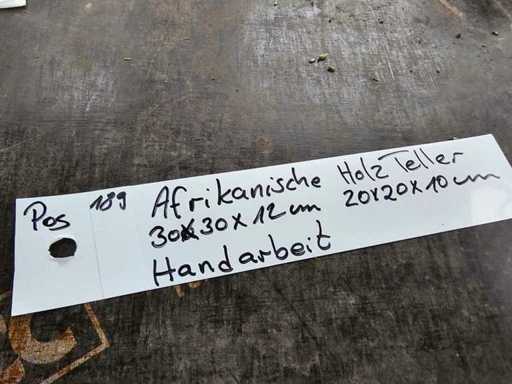 Pos 189 Afrikanische Holz Teller
30x30x12cm 20x20x10cm
Handarbeit